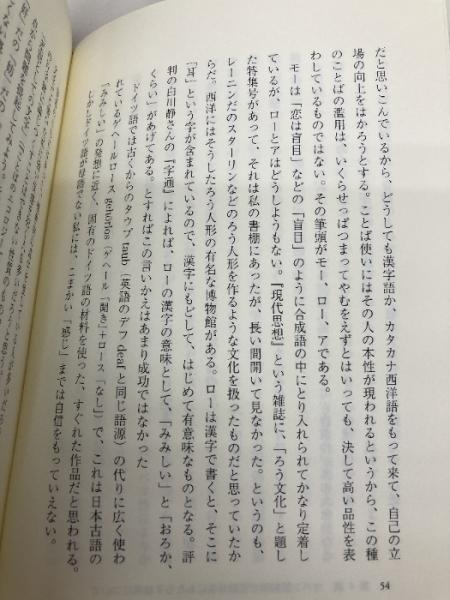 だと思いこんでいるから、どうしても漢字語か、カタカナ西洋語をもって来て、自己の立
場の向上をはかろうとする。ことば使いにはその人の本性が現われるというから、この種
のことばの濫用は、いくらせっぱつまってやむをえずとはいっても、決して高い品性を表
わしているものではない。その筆頭がモー、ロー、アである。
モーは「恋は盲目」などの「盲目」のように合成語の中にとり入れられてかなり定着し
ているが、ローとアはどうしようもない。『現代思想』という雑誌に、「ろう文化」と題し
た特集号があって、それは私の書棚にあったが、長い間開いて見なかった。というのも、
レーニンだのスターリンなどのろう人形を作るような文化を扱ったものだと思っていたか
らだ。西洋にはそうしたろう人形の有名な博物館がある。ローは漢字で書くと、そこに
「耳」という字が含まれているので、漢字にもどして、はじめて有意味なものとなる。評
判の白川静さんの『字通』によれば、ローの漢字の意味として、「みみしい」と「おろか、
くらい」があげてある。とすればこの言いかえはあまり成功ではなかった
ドイツ語では古くからのタウプ taub（英語のデフ deaf と同じ語源）の代りに広く使わ
れているゲヘールロース gehörlos（ゲヘール「聞き」＋ロース「なし」）で、これは日本古語の
「みみしい」の発想に近く、固有のドイツ語の材料を使った、すぐれた作品だと思われる。
しかしドイツ語が母語でない私には、こまかい「感じ」までは自信をもっていえない。
54